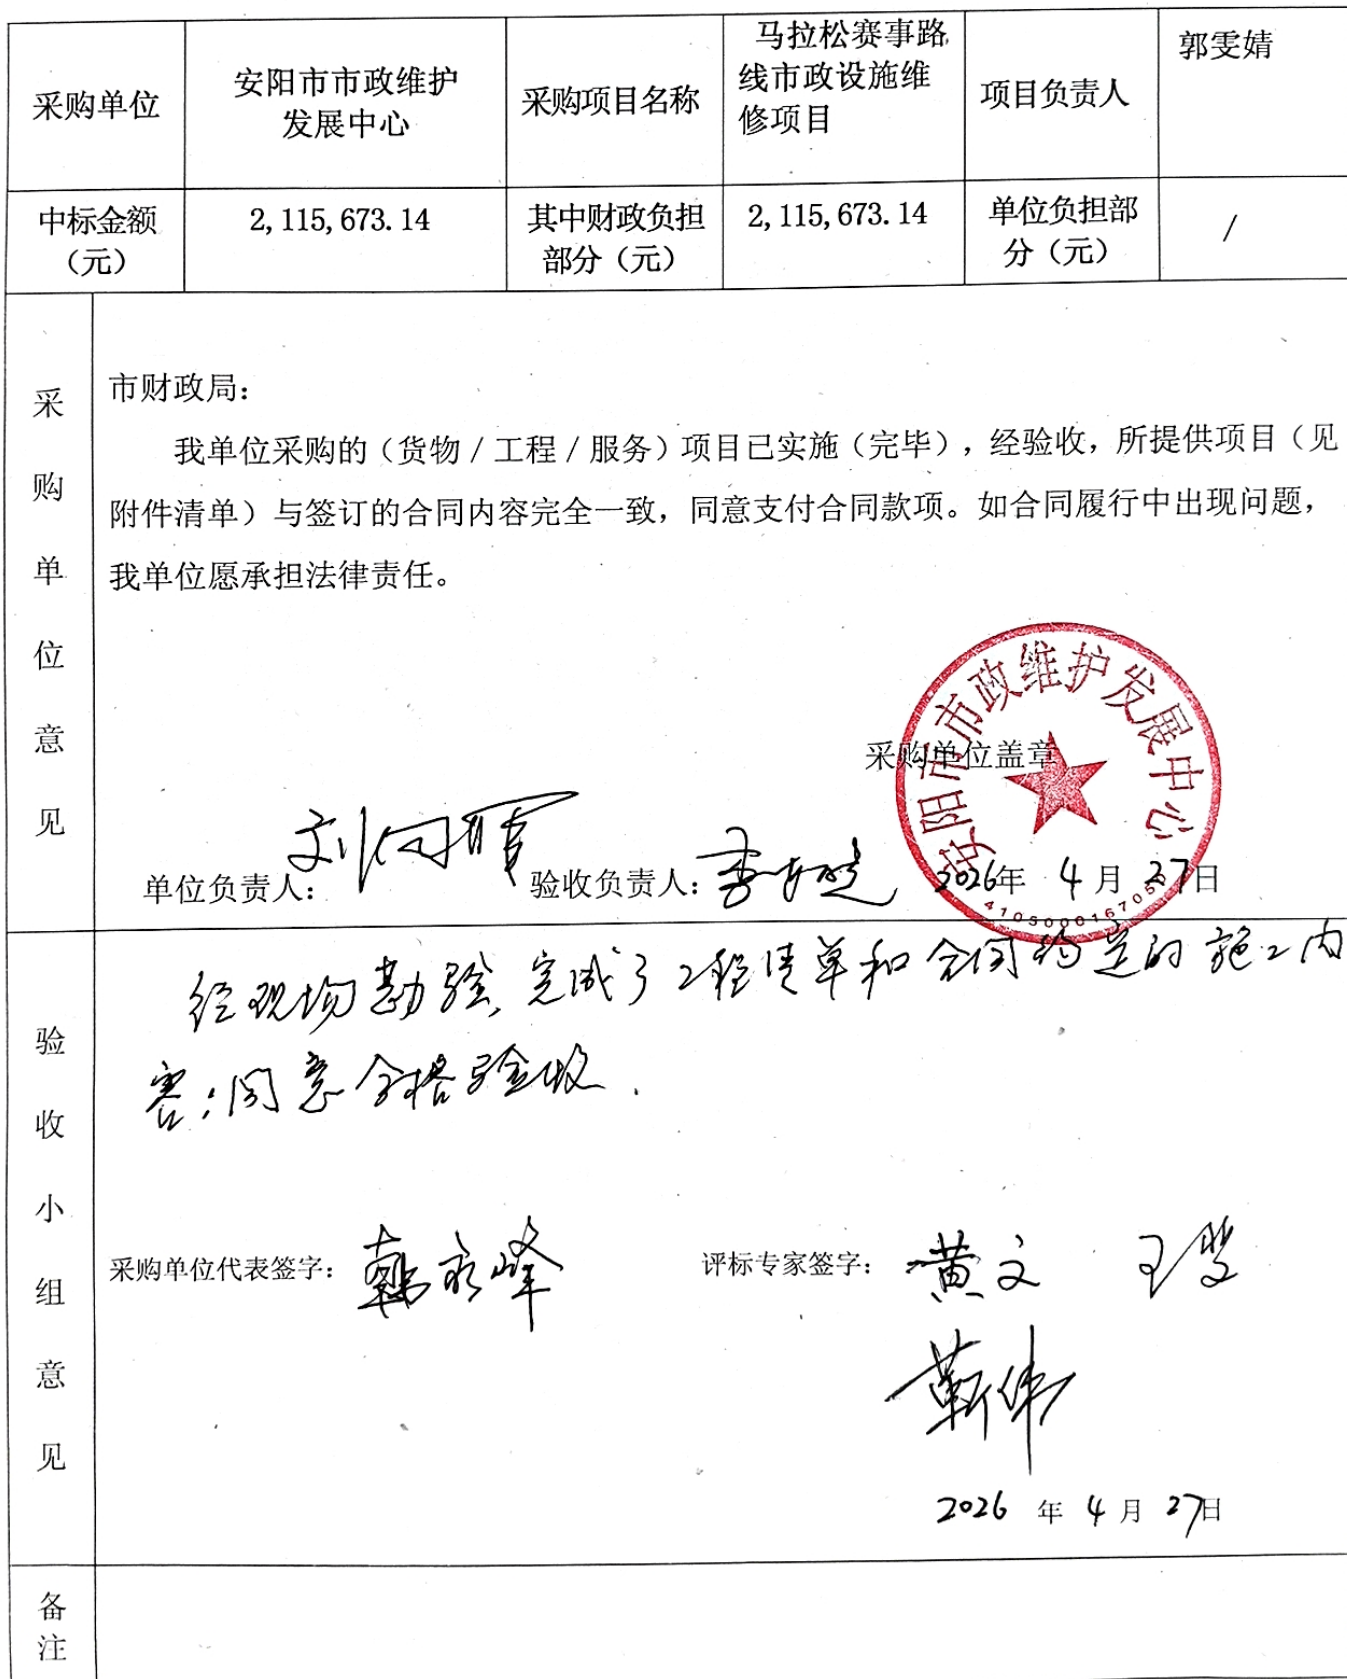 采购单位
安阳市市政维护
发展中心
采购项目名称
马拉松赛事路
线市政设施维
修项目
项目负责人
郭雯婧
中标金额
（元）
2,115,673.14
其中财政负担
部分（元）
2,115,673.14
单位负担部
分（元）
/
采购单位意见
市财政局：
我单位采购的（货物/工程/服务）项目已实施（完毕），经验收，所提供项目（见
附件清单）与签订的合同内容完全一致，同意支付合同款项。如合同履行中出现问题，
我单位愿承担法律责任。
安阳市市政维护发展中心
采购单位盖章
单位负责人：
验收负责人：
2026年 4月 27日
验收小组意见
经现场勘验，完成了工程清单和合同约定的施工内
容，同意合格验收.
采购单位代表签字：韩永峰
评标专家签字：黄文
靳伟
2026 年 4 月 27日
备注